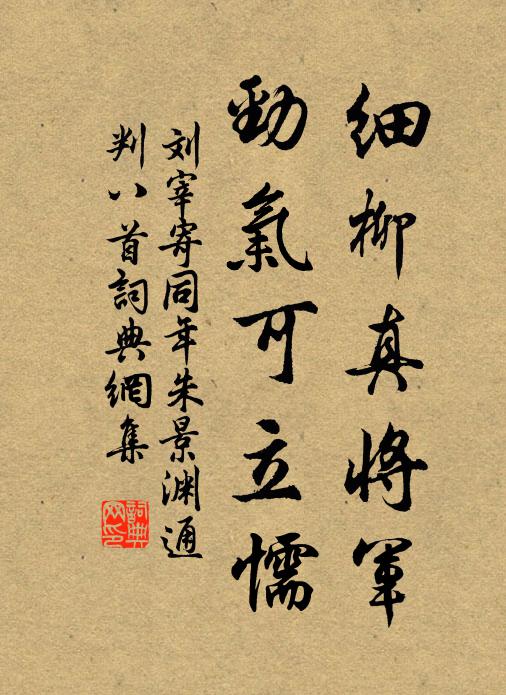 细柳真将军
勁氣可立懦
刘宰寄同年朱景渊通
判八首詞典網集
詞典網印